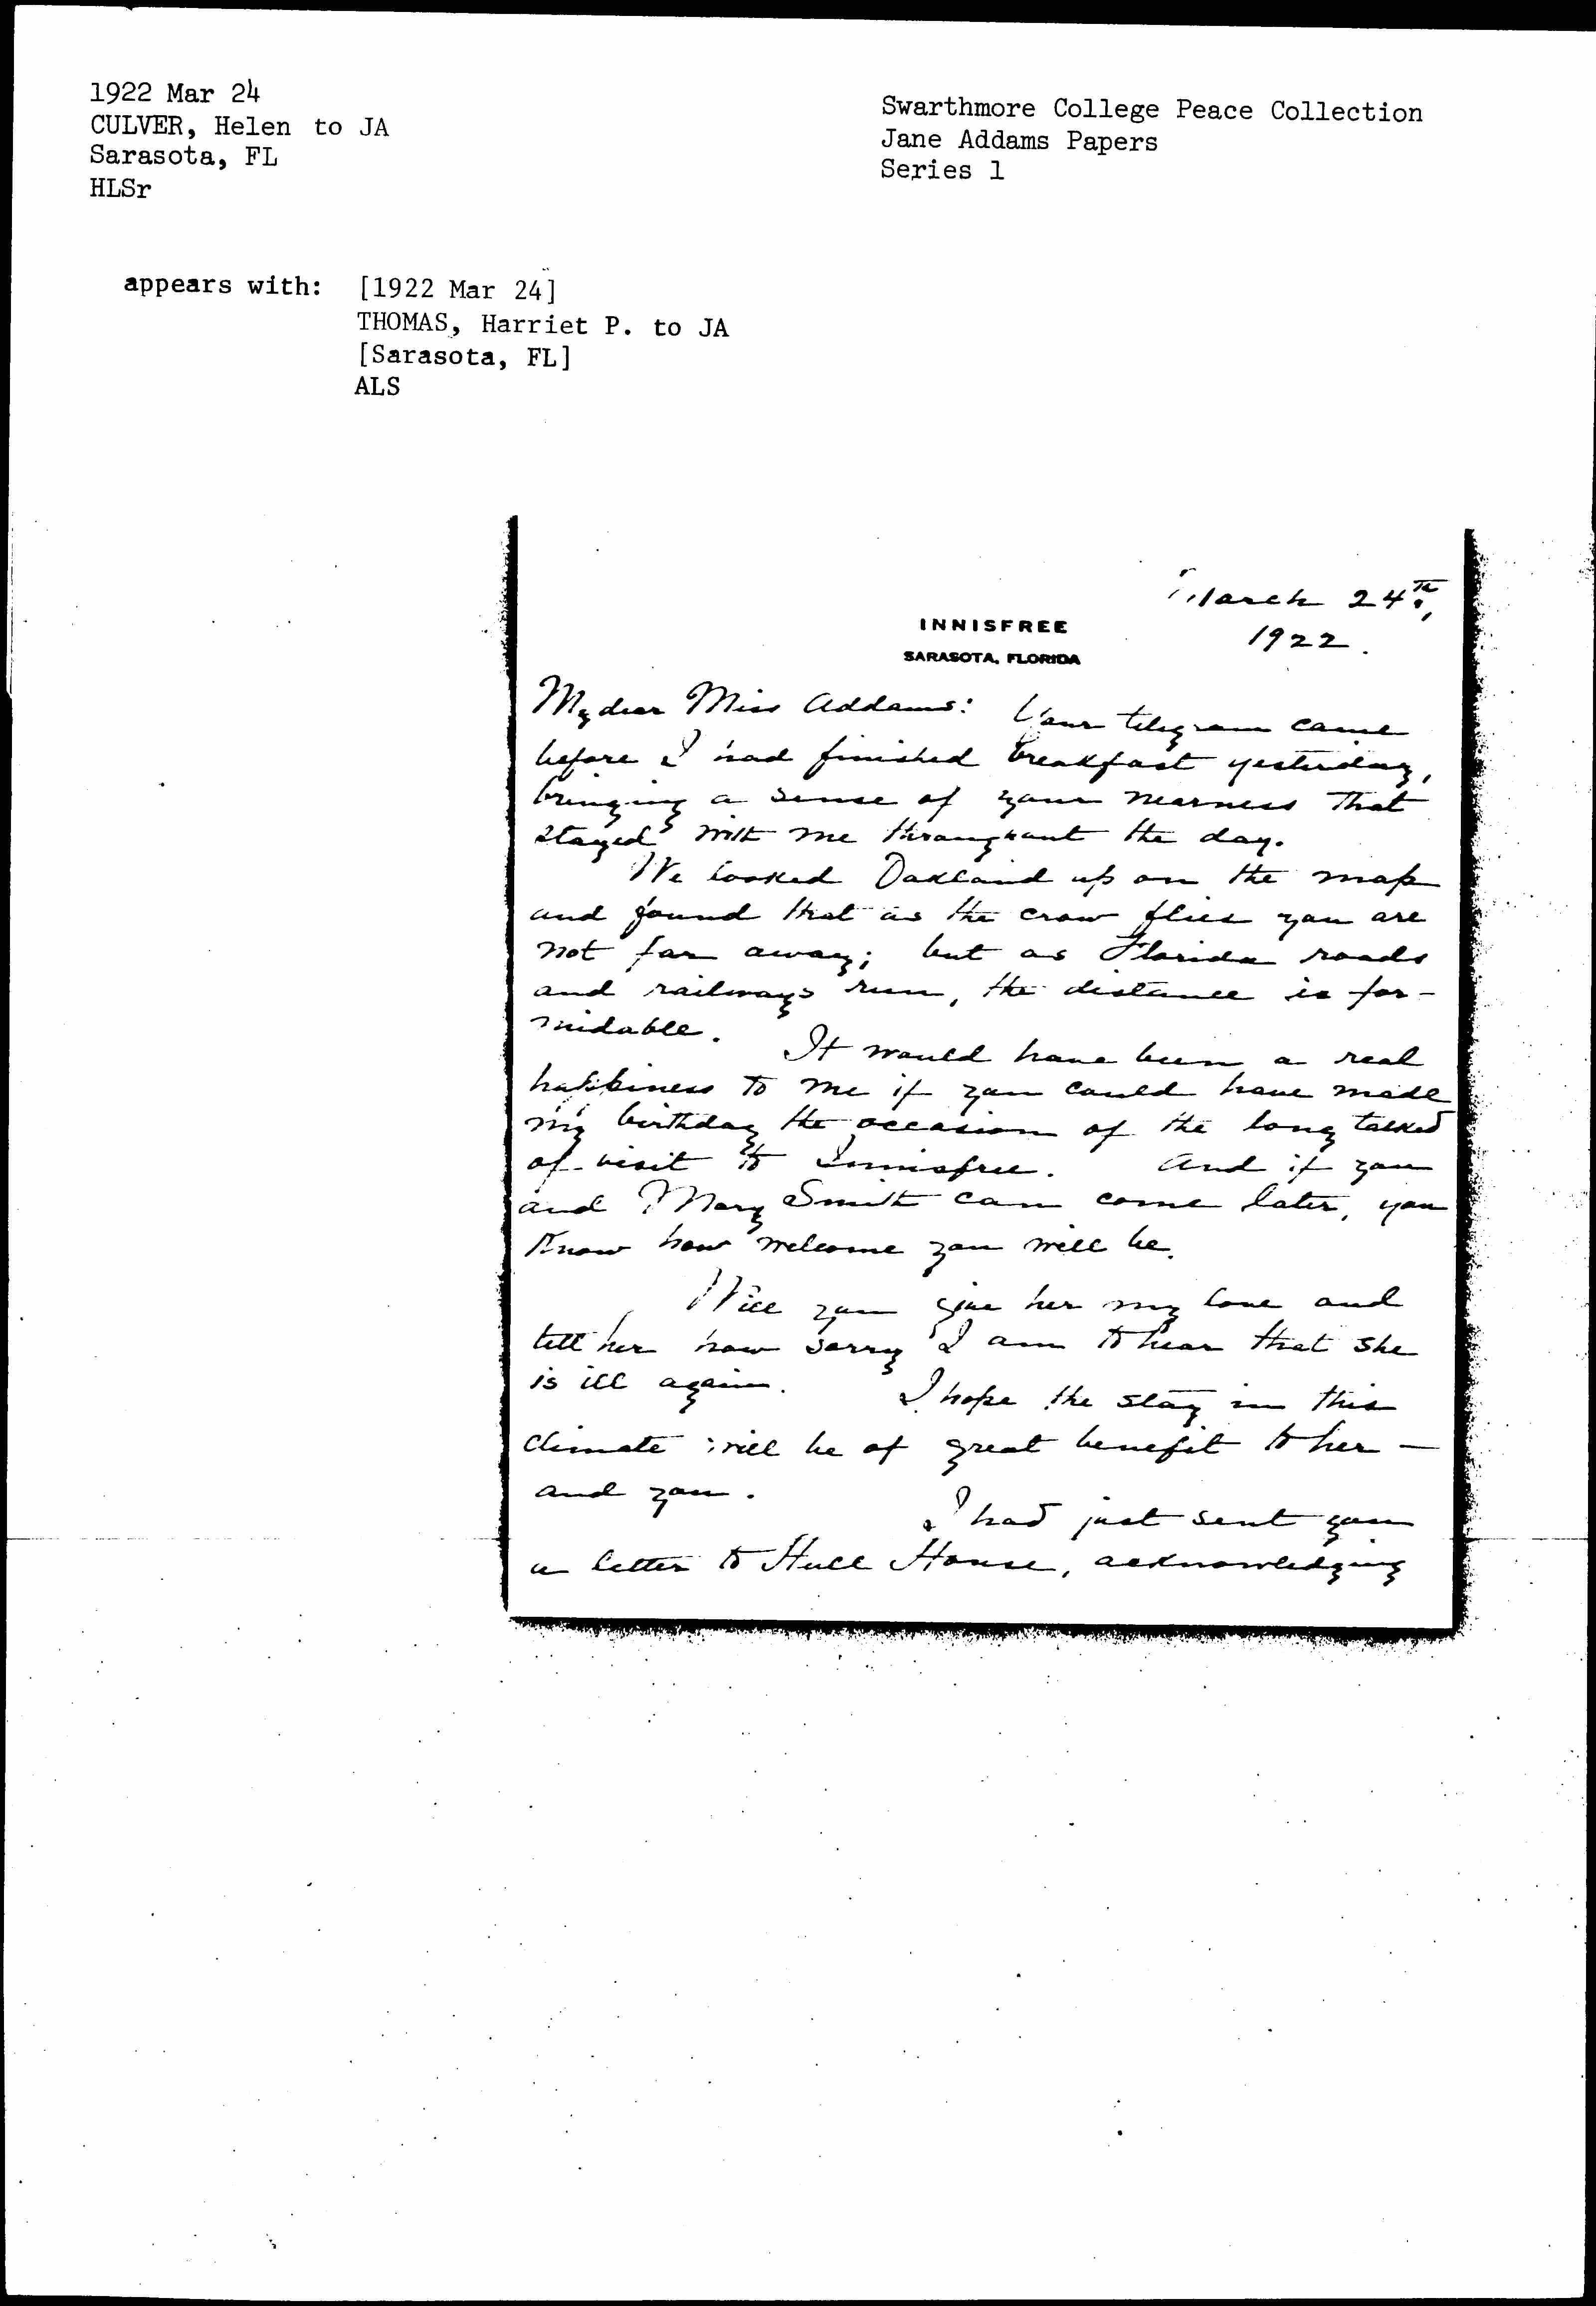 1922 Mar 24
CULVER, Helen to JA
Sarasota, FL
HLSr
Swarthmore College Peace Collection
Jane Addams Papers
Series 1
appears with: [1922 Mar 24]
THOMAS, Harriet P. to JA
[Sarasota, FL]
ALS
March 24th,
1922.
INNISFREE
SARASOTA, FLORIDA
My dear Miss Addams: Your telegram came
before I had finished breakfast yesterday,
bringing a sense of your nearness that
stayed with me throughout the day.
We looked Oakland up on the map
and found that as the crow flies you are
not far away; but as Florida roads
and railways run, the distance is for-
midable. It would have been a real
happiness to me if you could have made
my birthday the occasion of the long talked
of visit to Innisfree. And if you
and Mary Smith can come later, you
know how welcome you will be.
Will you give her my love and
tell her how sorry I am to hear that she
is ill again. I hope the stay in this
climate will be of great benefit to her —
and you. I had just sent you
a letter to Hull House, acknowledging